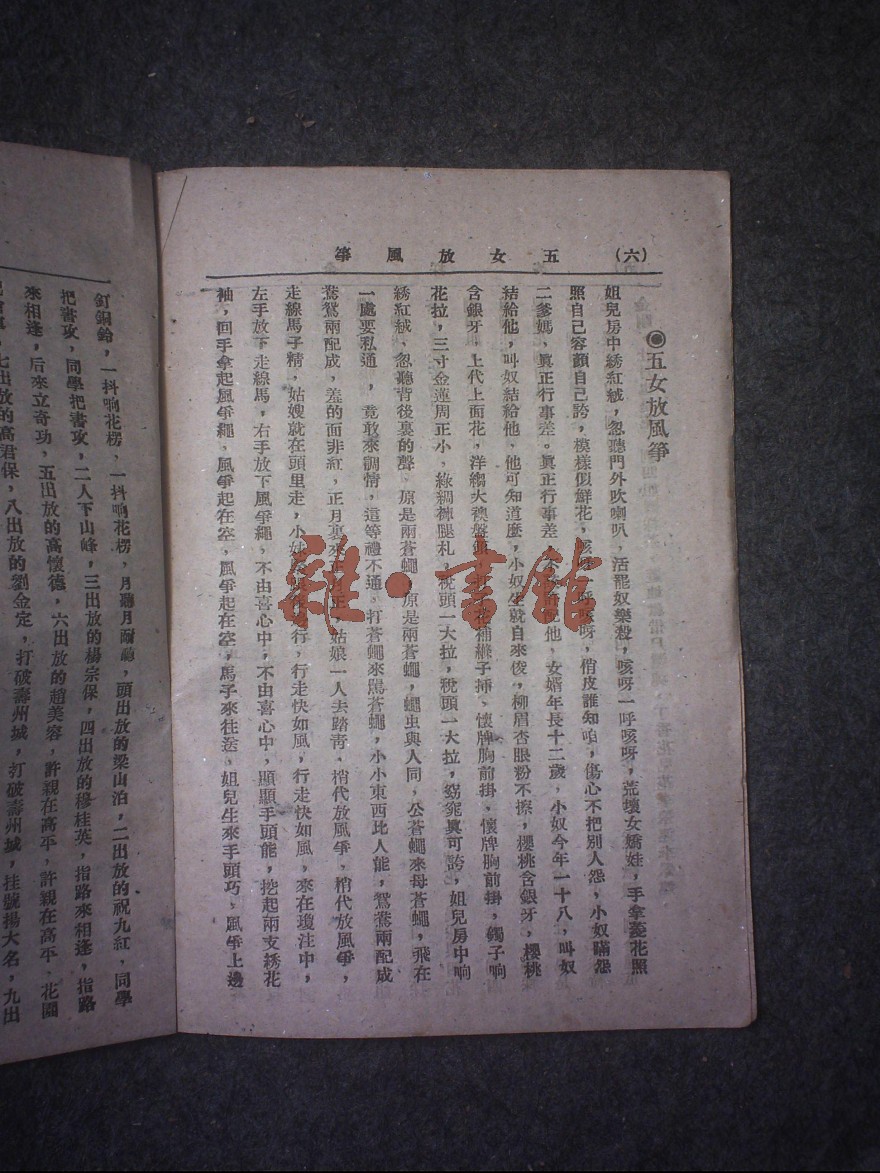 (六)　五女放風箏
◉五女放風箏
姐兒房中綉紅絨，忽聽門外吹喇叭，活罷奴樂殺，咳呀一呼咳呀，荒壞女嬌娃，手拿菱花照
照自己容顏自己誇，模樣似鮮花，咳呀一呼咳呀，梢皮誰知咱，傷心不把別人怨，小奴瞞怨
二爹媽，眞正行事差。眞正行事差，不該許配他，女婿年長十二歲，小奴今年一十八，叫奴
結給他，叫奴結給他，他可知道麽，小奴生就自來俊，柳眉杏眼粉不擦，櫻桃含銀牙，櫻桃
含銀牙，上代上面花，洋縐大襖盤頭，花補縧子挿，懷牌胸前掛，懷牌胸前掛，鐲子响
花拉，三寸金蓮周正小，綠綢褲腿札，梲頭一大拉，梲頭一大拉，窈窕眞可誇，姐兒房中响
綉紅絨，忽聽背後裏的聲，原是兩蒼蠅，原是兩蒼蠅，蠅虫與人同，公蒼蠅來母蒼蠅，飛在
一處要私通，竟敢來調情，這等禮不通，打蒼蠅來罵蒼蠅，小小東西比人能，鴛鴦兩配成
鴛鴦兩配成，羞的面非紅，正月裏來正月正，姑娘一人去踏靑，梢代放風爭，梢代放風爭，
走線馬子精，姑嫂就在頭里走，小妹行，行走快如風，行走快如風，來在瓊注中，
左手放下走線馬，右手放下風爭繩，不由喜心中，不由喜心中，顯顯手頭能，挖起兩支綉花
袖，回手拿起風爭繩，風爭起在空，風爭起在空，馬子來往送，姐兒生來手頭巧，風爭上邊
釘銅鈴，一抖响花楞，一抖响花楞，月聽月耐聽，頭出放的梁山泊，二出放的祝九紅，同學
把書攻，同學把書攻，二人下山峰，三出放的楊宗保，四出放的穆桂英，指路來相逢，指路
來相逢，后來立奇功，五出放的高懷德，六出放的趙美容，許親在高平，許親在高平，花園
七出放的高君保，八出放的劉金定，打破壽州城，打破壽州城，挂號揚大名，九出
雜·書館